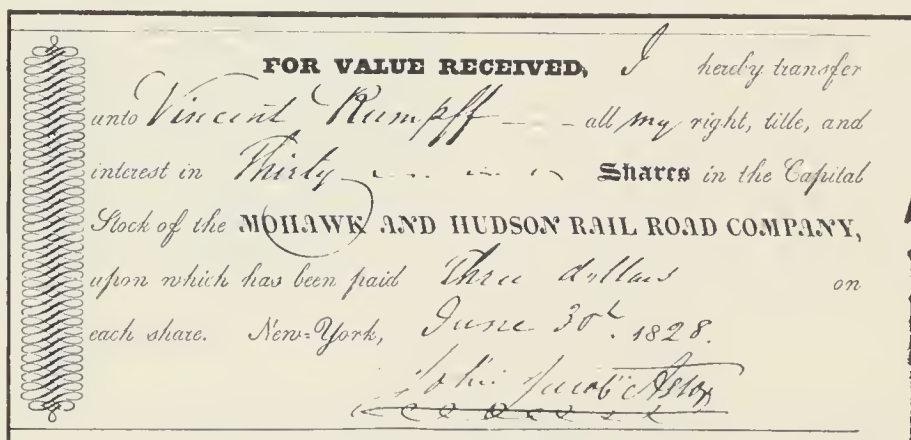 FOR VALUE RECEIVED, I hereby transfer
unto Vincent Rumpff — — all my right, title, and
interest in Thirty Shares in the Capital
Stock of the MOHAWK AND HUDSON RAIL ROAD COMPANY,
upon which has been paid Three dollars on
each share. New-York, June 30th. 1828.
John Jacob Astor